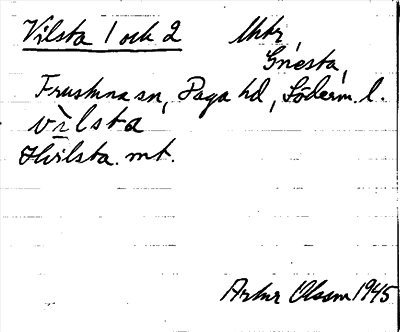 Vilsta 1 och 2
Gnesta,
Frustuna sn, Daga hd, Söderm. l.
vi̊lsta
Hvilsta. mt.
Artur Olsson 1945